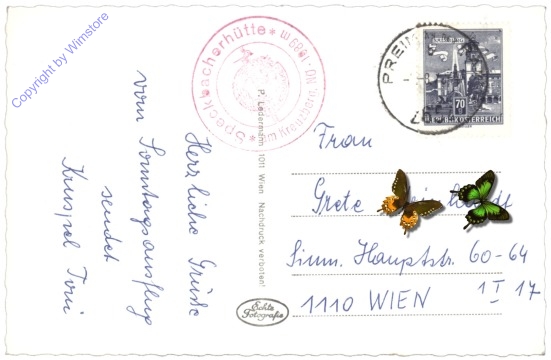 Copyright by Wimstore
Herzliche Grüße
vom Sonntagsausflug
sendet
Toni
Speckbacherhütte * am Kreuzberg, NÖ. 1089 m *
P. Ledermann 1011 Wien Nachdruck verboten!
Echte
Fotografie
70
REPUBLIK ÖSTERREICH
Frau
Grete
Simm. Hauptstr. 60-64
1110 WIEN 1 I 17